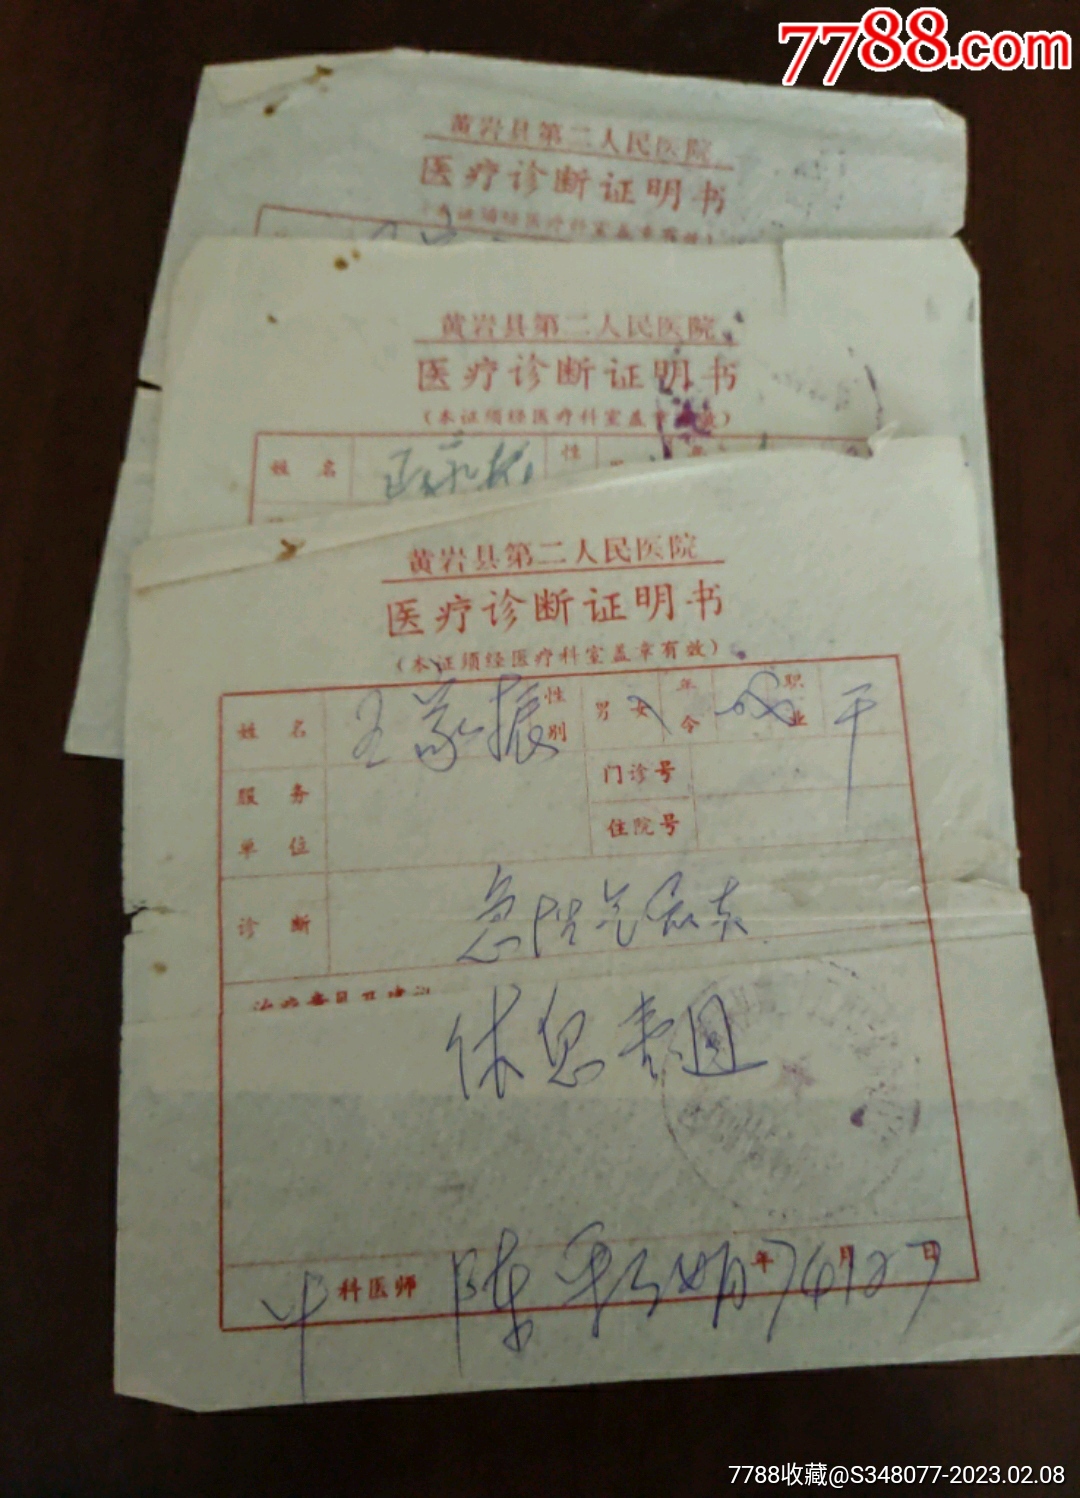 7788.com
黄岩县第二人民医院
医疗诊断证明书
（本证须经医疗科室盖章有效）
黄岩县第二人民医院
医疗诊断证明书
（本证须经医疗科室盖章有效）
姓名 性
黄岩县第二人民医院
医疗诊断证明书
（本证须经医疗科室盖章有效）
姓名 王家振 性别 男女 年令 成 职业 干
服务单位 门诊号
住院号
诊断 急性气管炎
治疗意见及建议
休息壹週
中 科医师 陈 年 月 日 74 12 7
7788收藏@S348077-2023.02.08